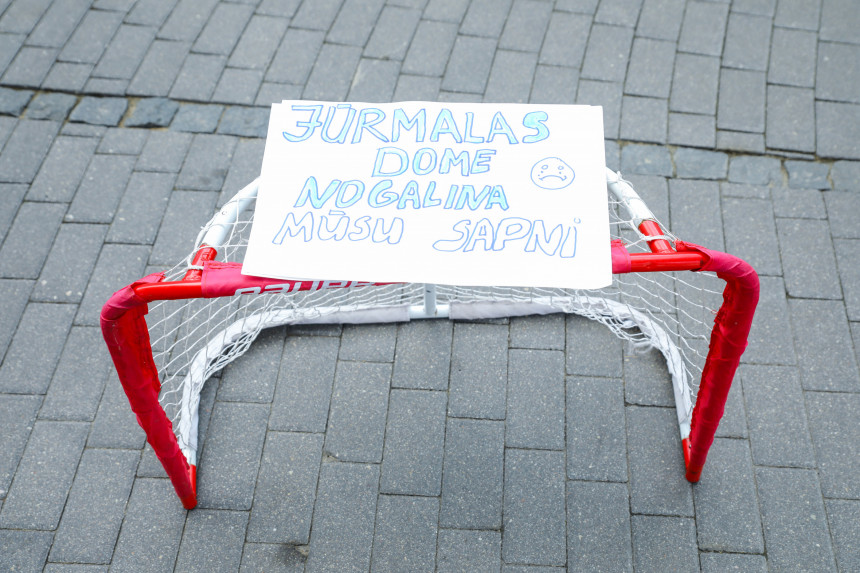 JŪRMALAS
DOME
NOGALINA
MŪSU SAPNI